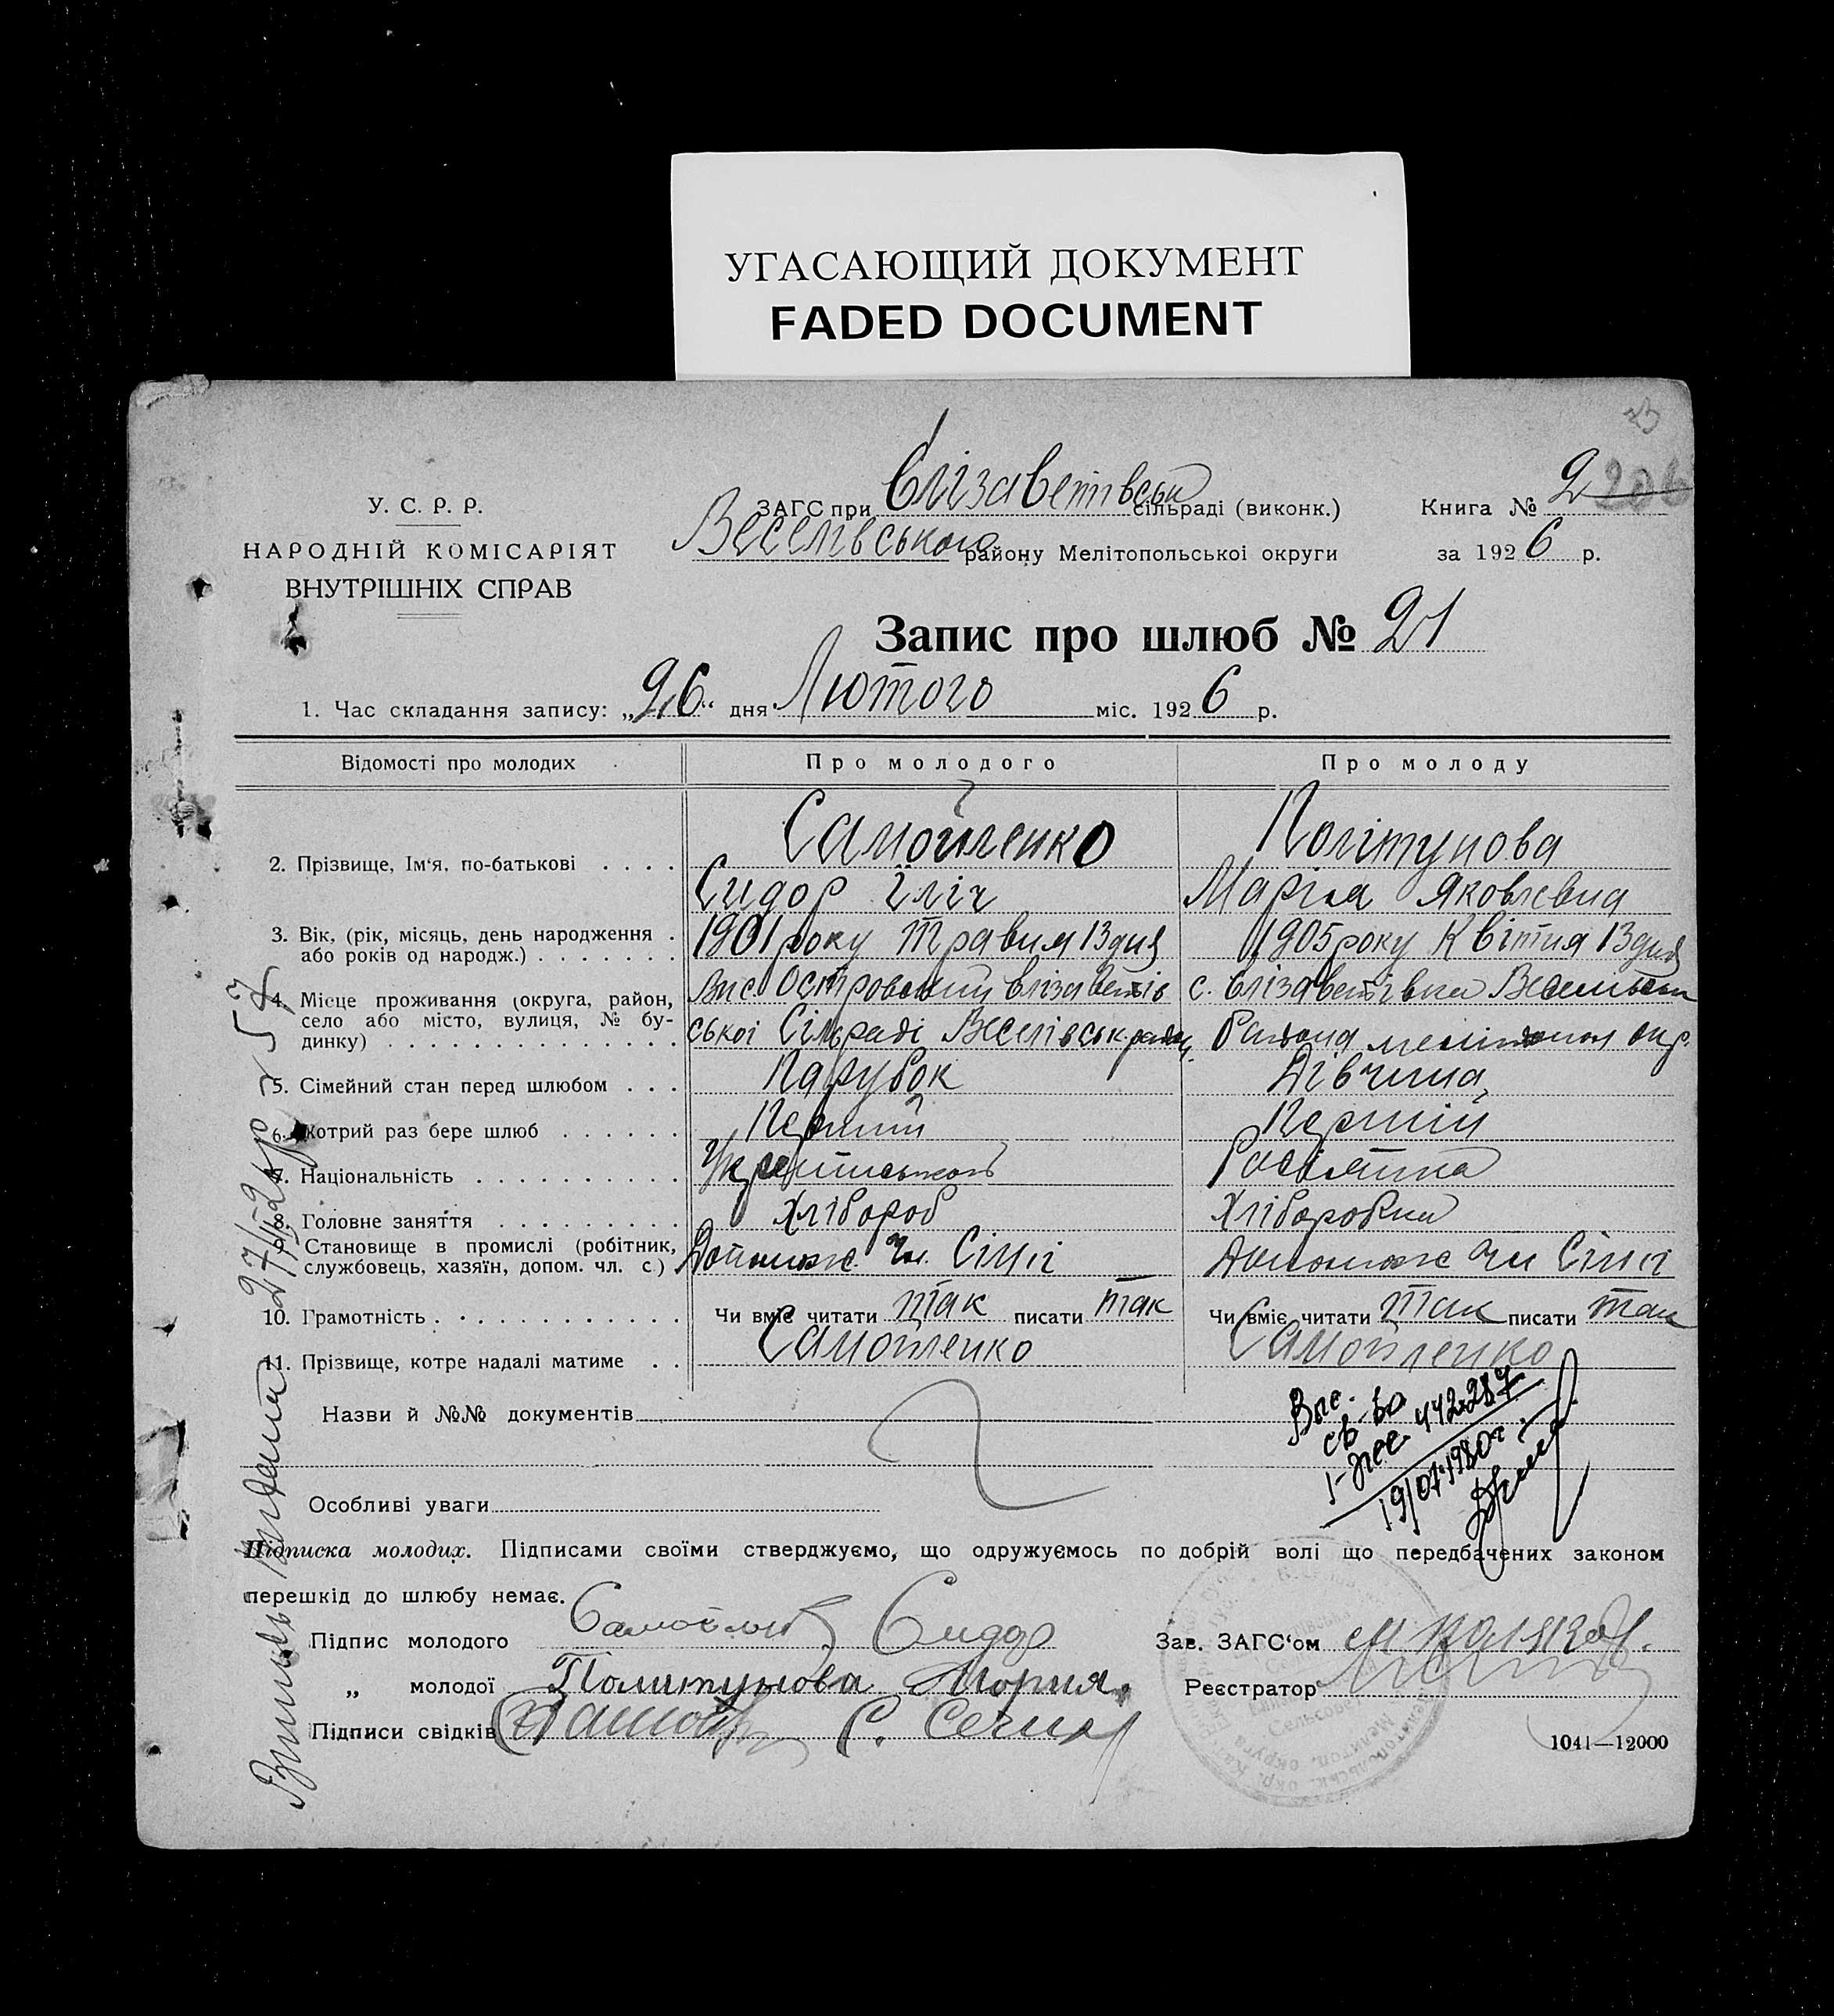 УГАСАЮЩИЙ ДОКУМЕНТ
FADED DOCUMENT
У. С. Р. Р.
НАРОДНІЙ КОМІСАРІЯТ
ВНУТРІШНІХ СПРАВ
ЗАГС при Єлізаветівськ сільраді (виконк.)
Веселівського району Мелітопольської округи
Книга № 2
за 1926 р.
Запис про шлюб № 21
1. Час складання запису: „26“ дня Лютого міс. 1926 р.
Відомості про молодих Про молодого Про молоду
2. Прізвище, Ім‘я, по-батькові . . . . Самойленко Політунова
Сидор Ілліч Марія Яковлевна
3. Вік, (рік, місяць, день народження . 1901 року травня 13 дня 1905 року Квітня 13 дня
або років од народж.) . . . . . . .
4. Місце проживання (округа, район, Вис. Островський Єлізаветів с. Єлізаветівка
село або місто, вулиця, № бу- ської Сільраді Веселівськ. району
динку) . . . . . . . . . . . . . . . окр.
5. Сімейний стан перед шлюбом . . . Парубок Дівчина
6. Котрий раз бере шлюб . . . . . . Перший Перший
7. Національність . . . . . . . . . . Росіянка
8. Головне заняття . . . . . . . . . Хлібороб Хлiборобка
9. Становище в промислі (робітник, Допомож. Чл. Сімї Допомож Чл Сімї
службовець, хазяїн, допом. чл. с.)
10. Грамотність . . . . . . . . . . . Чи вміє читати так писати так Чи вміє читати так писати так
11. Прізвище, котре надалі матиме . . Самойленко Самойленко
Назви й №№ документів
Выс. св-во
I-ЖС 442287
19/07.1980г.
Особливі уваги
Підписка молодих. Підписами своїми стверджуємо, що одружуємось по добрій волі що передбачених законом
перешкід до шлюбу немає.
Підпис молодого Сидор
Зав. ЗАГС‘ом
„ молодої Политунова Мория.
Реєстратор
Підписи свідків
1041—12000